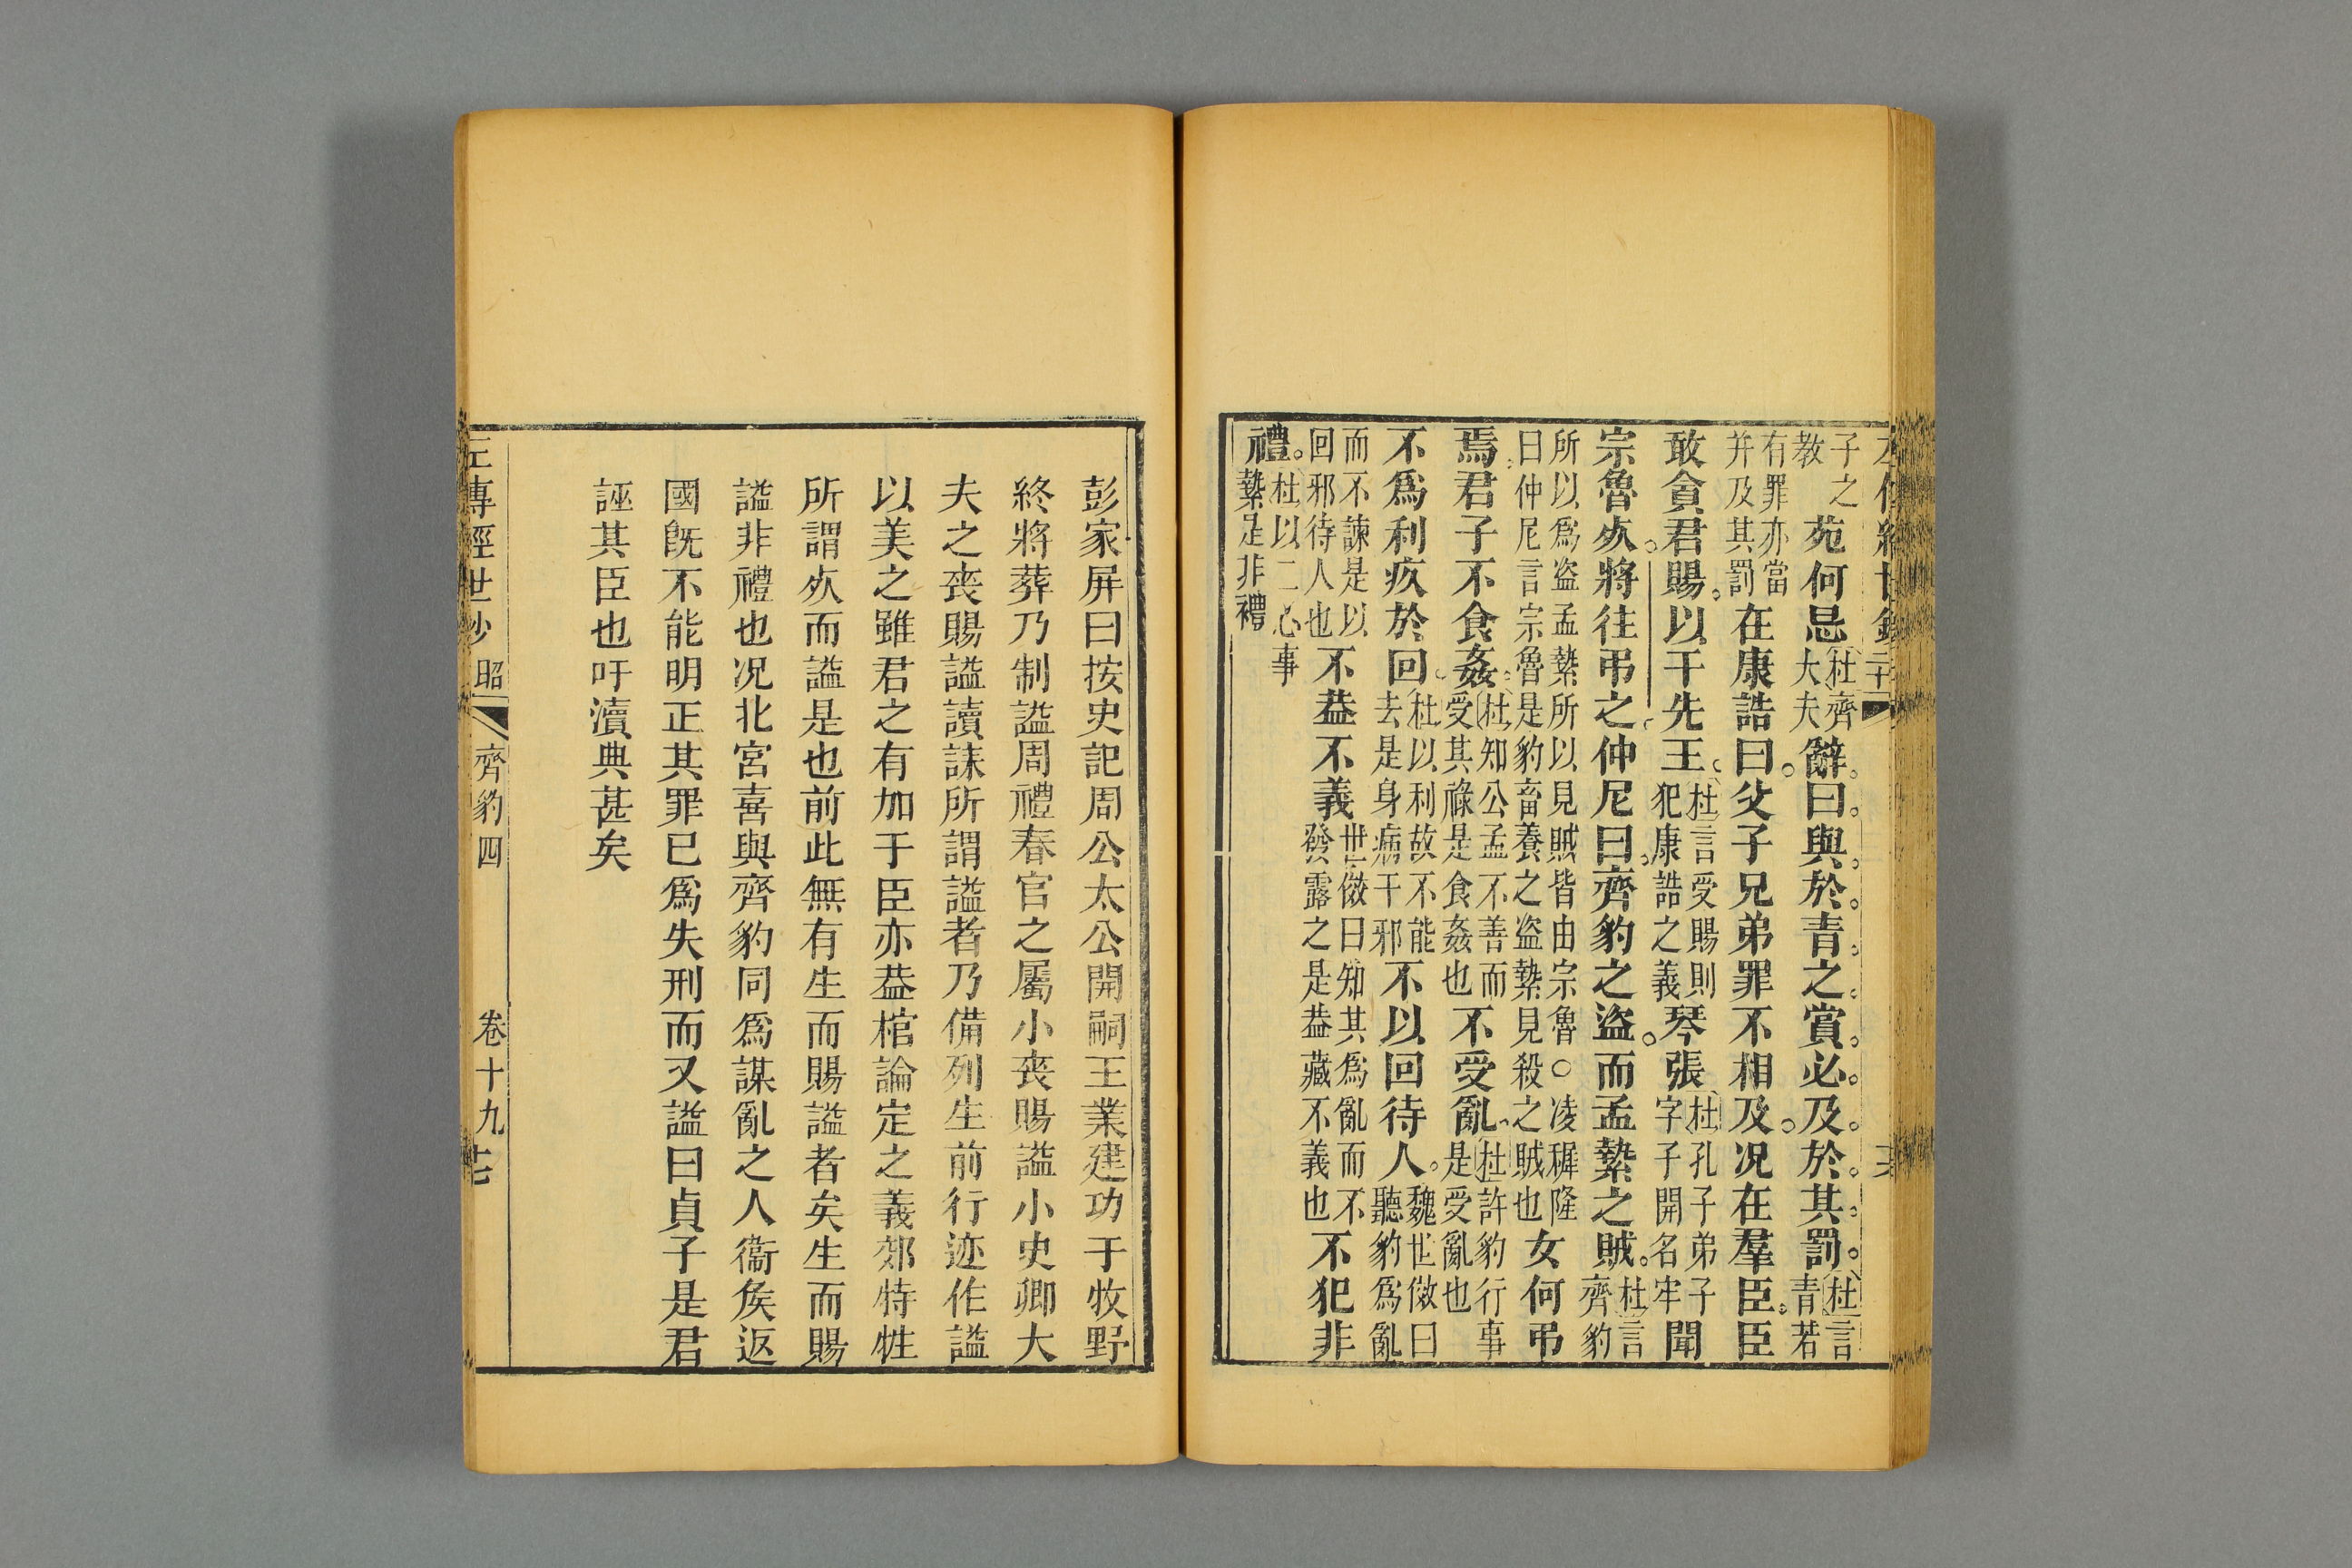 子之教苑何忌杜齊大夫辭曰與於青之賞必及於其罰杜言青若
有罪亦當并及其罰在康誥曰父子兄弟罪不相及况在羣臣臣
敢貪君賜以干先王杜言受賜則犯康誥之義琴張杜孔子弟子字子開名牢聞
宗魯死將往弔之仲尼曰齊豹之盜而孟縶之賊杜言齊豹
所以爲盜孟縶所以見賊皆由宗魯○凌稺隆曰仲尼言宗魯是豹畜養之盜縶見殺之賊也女何弔
焉君子不食姦杜知公孟不善而受其祿是食姦也不受亂杜許豹行事是受亂也
不爲利疚於回杜以利故不能去是身病于邪不以回待人魏世傚曰聽豹爲亂
而不諫是以回邪待人也不葢不義世傚曰知其爲亂而不發露之是葢藏不義也不犯非
禮杜以二心事縶是非禮
彭家屏曰按史記周公太公開嗣王業建功于牧野
終將葬乃制謚周禮春官之屬小喪賜謚小史卿大
夫之喪賜謚讀誄所謂謚者乃備列生前行迹作謚
以美之雖君之有加于臣亦葢棺論定之義郊特牲
所謂死而謚是也前此無有生而賜謚者矣生而賜
謚非禮也况北宮喜與齊豹同爲謀亂之人衞矦返
國旣不能明正其罪已爲失刑而又謚曰貞子是君
誣其臣也吁瀆典甚矣
左傳經世鈔 昭 齊豹四 卷十九 七